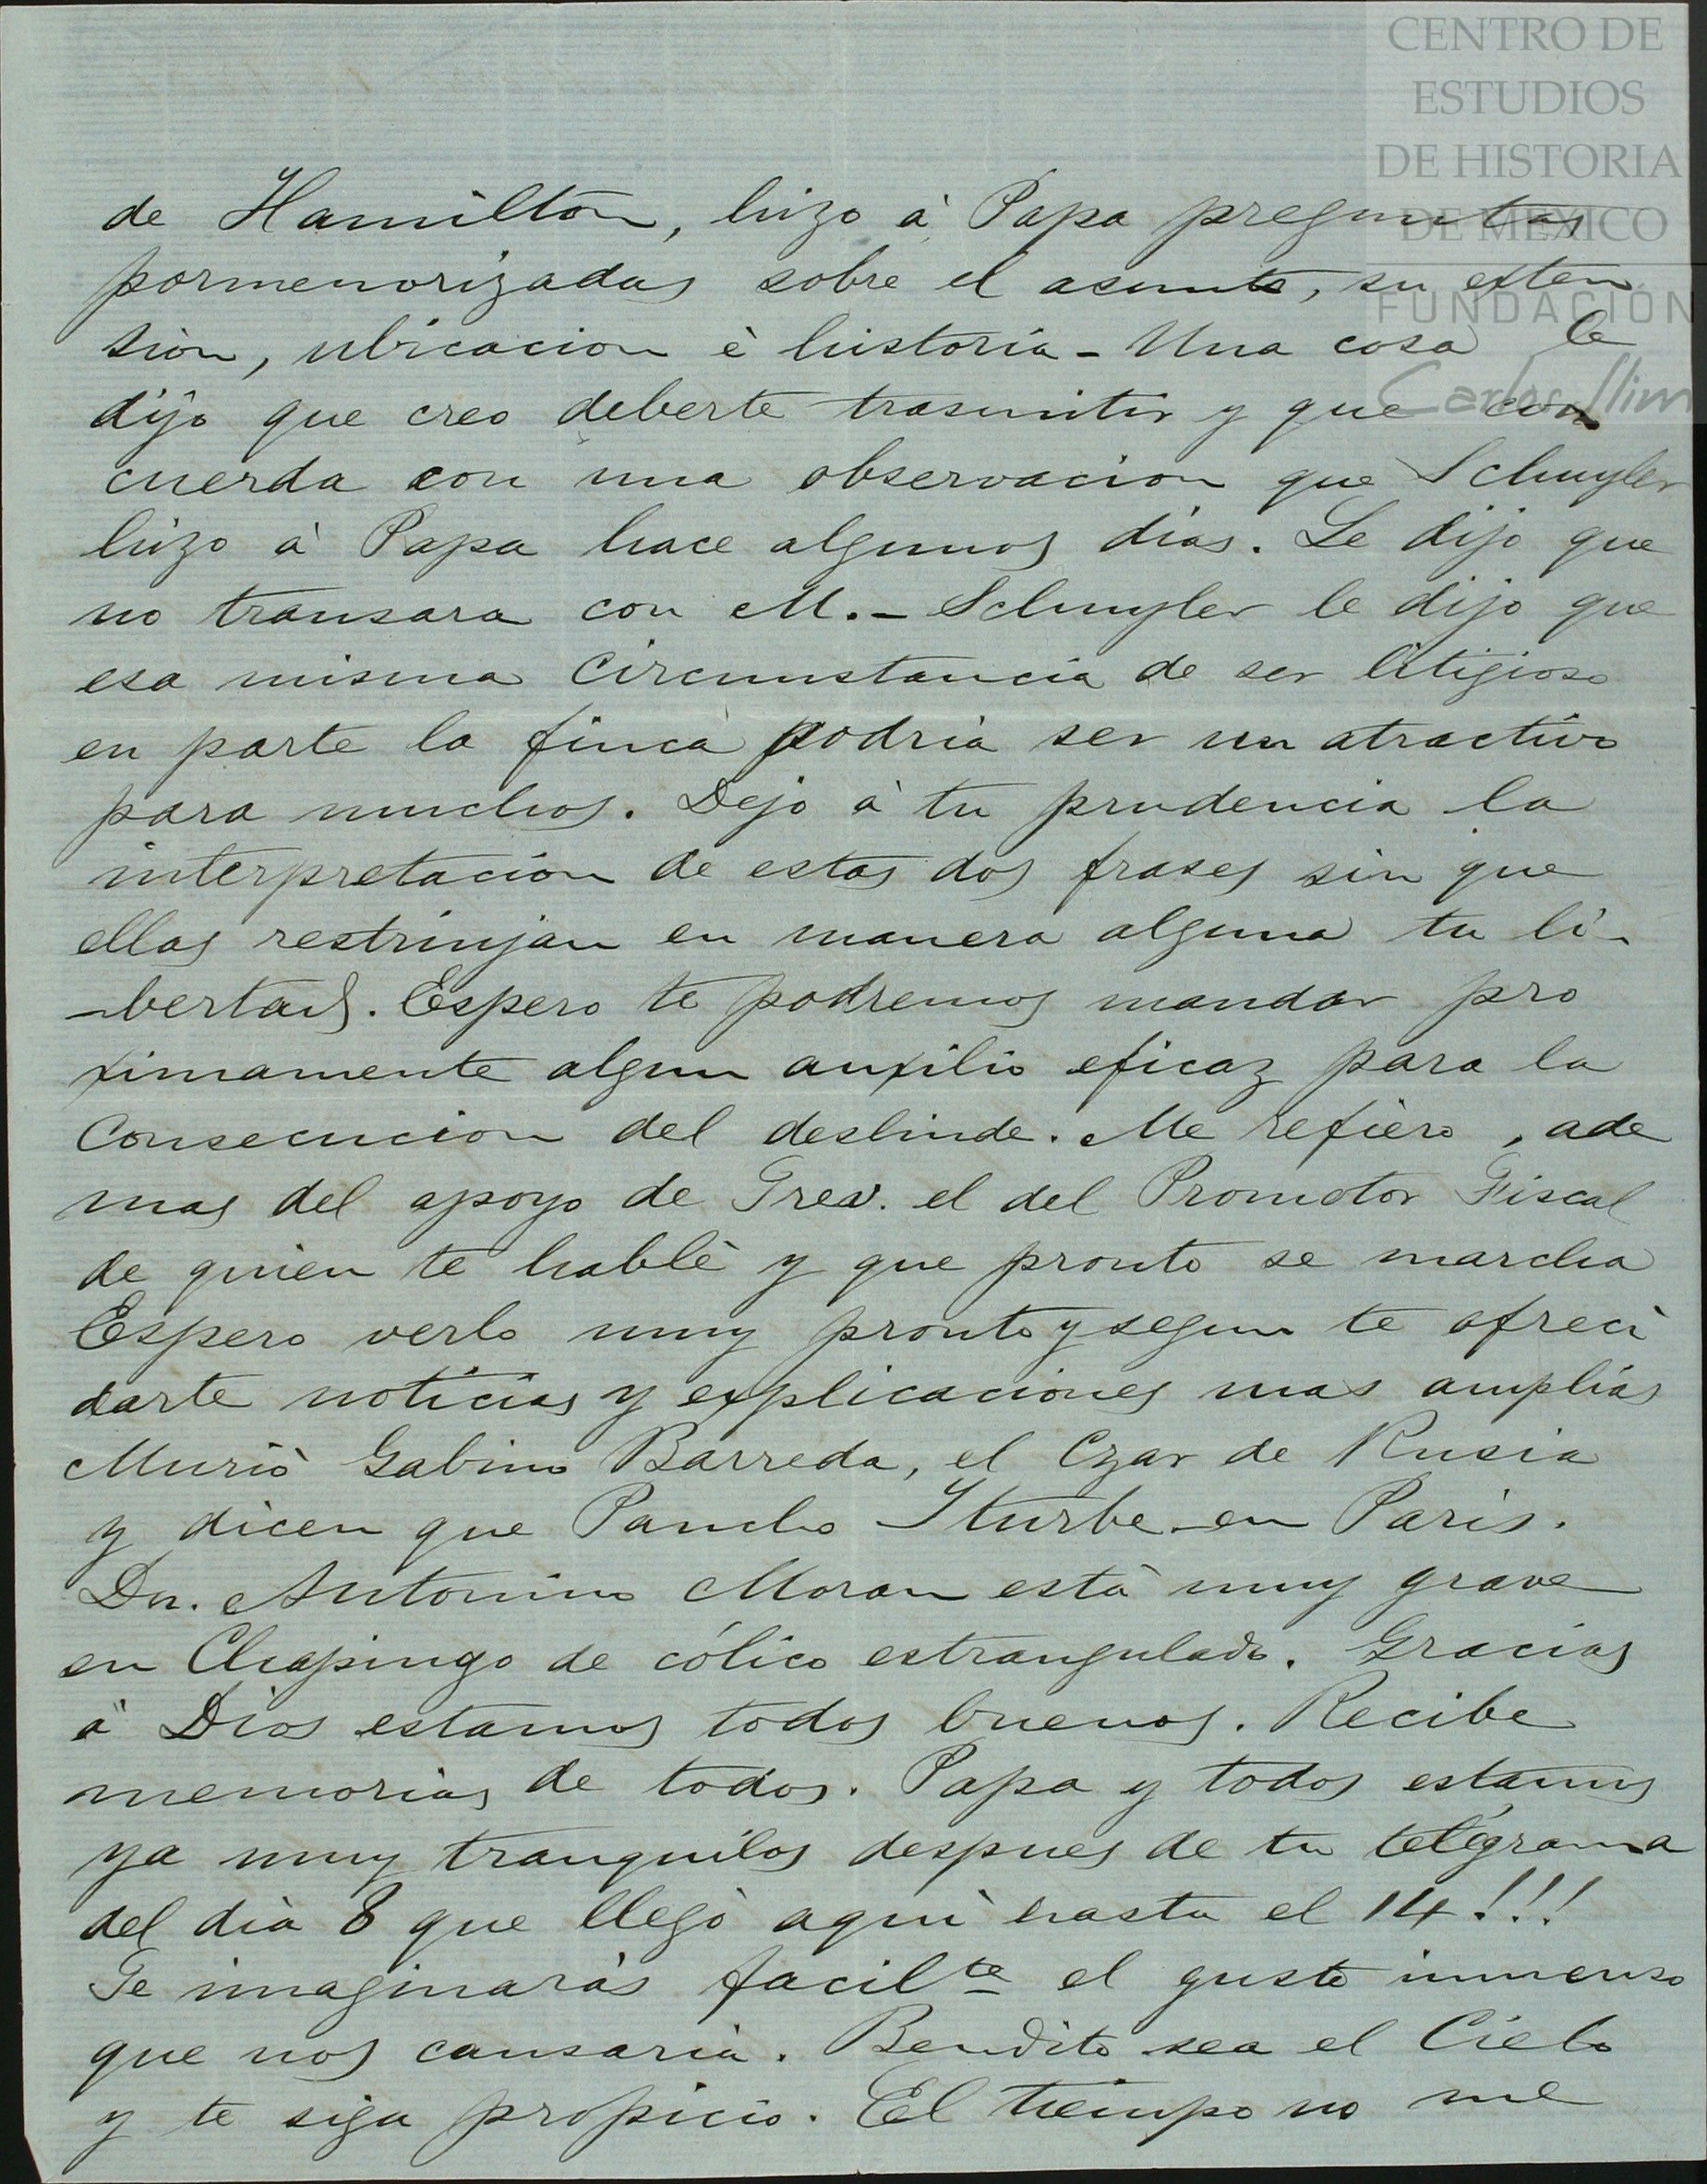 CENTRO DE
ESTUDIOS
DE HISTORIA
DE MÉXICO
FUNDACIÓN
Carlos Slim
de Hamilton, hizo à Papa preguntas
pormenorizadas sobre el asunto, su exten
sion, ubicacion è historia - Una cosa le
dijo que creo deberte trasmitir y que con
cuerda con una observacion que Schuyler
hizo à Papa hace algunos dias. Le dijo que
no transara con M. - Schuyler le dijo que
esa misma Circunstancia de ser litigioso
en parte la finca podria ser un atractivo
para muchos. Dejo à tu prudencia la
interpretacion de estas dos frases sin que
ellas restrinjan en manera alguna tu li-
-bertad. Espero te podremos mandar pro
ximamente algun auxilio eficaz para la
Consecucion del deslinde. Me refiero, ade
mas del apoyo de Trev. el del Promotor Fiscal
de quien te hablè y que pronto se marcha
Espero verlo muy pronto y segun te ofreci
darte noticias y explicaciones mas amplias
Muriò Gabino Barreda, el Czar de Rusia
y dicen que Pancho Yturbe en Paris.
Dn. Antonino Moran està muy grave
en Chapingo de cólico estrangulado. Gracias
à Dios estamos todos buenos. Recibe
memorias de todos. Papa y todos estamos
ya muy tranquilos despues de tu telégrama
del dia 8 que llegò aquì hasta el 14!!!
Te imaginaràs facilte el gusto inmenso
que nos causaria. Bendito sea el Cielo
y te siga propicio. El tiempo no me